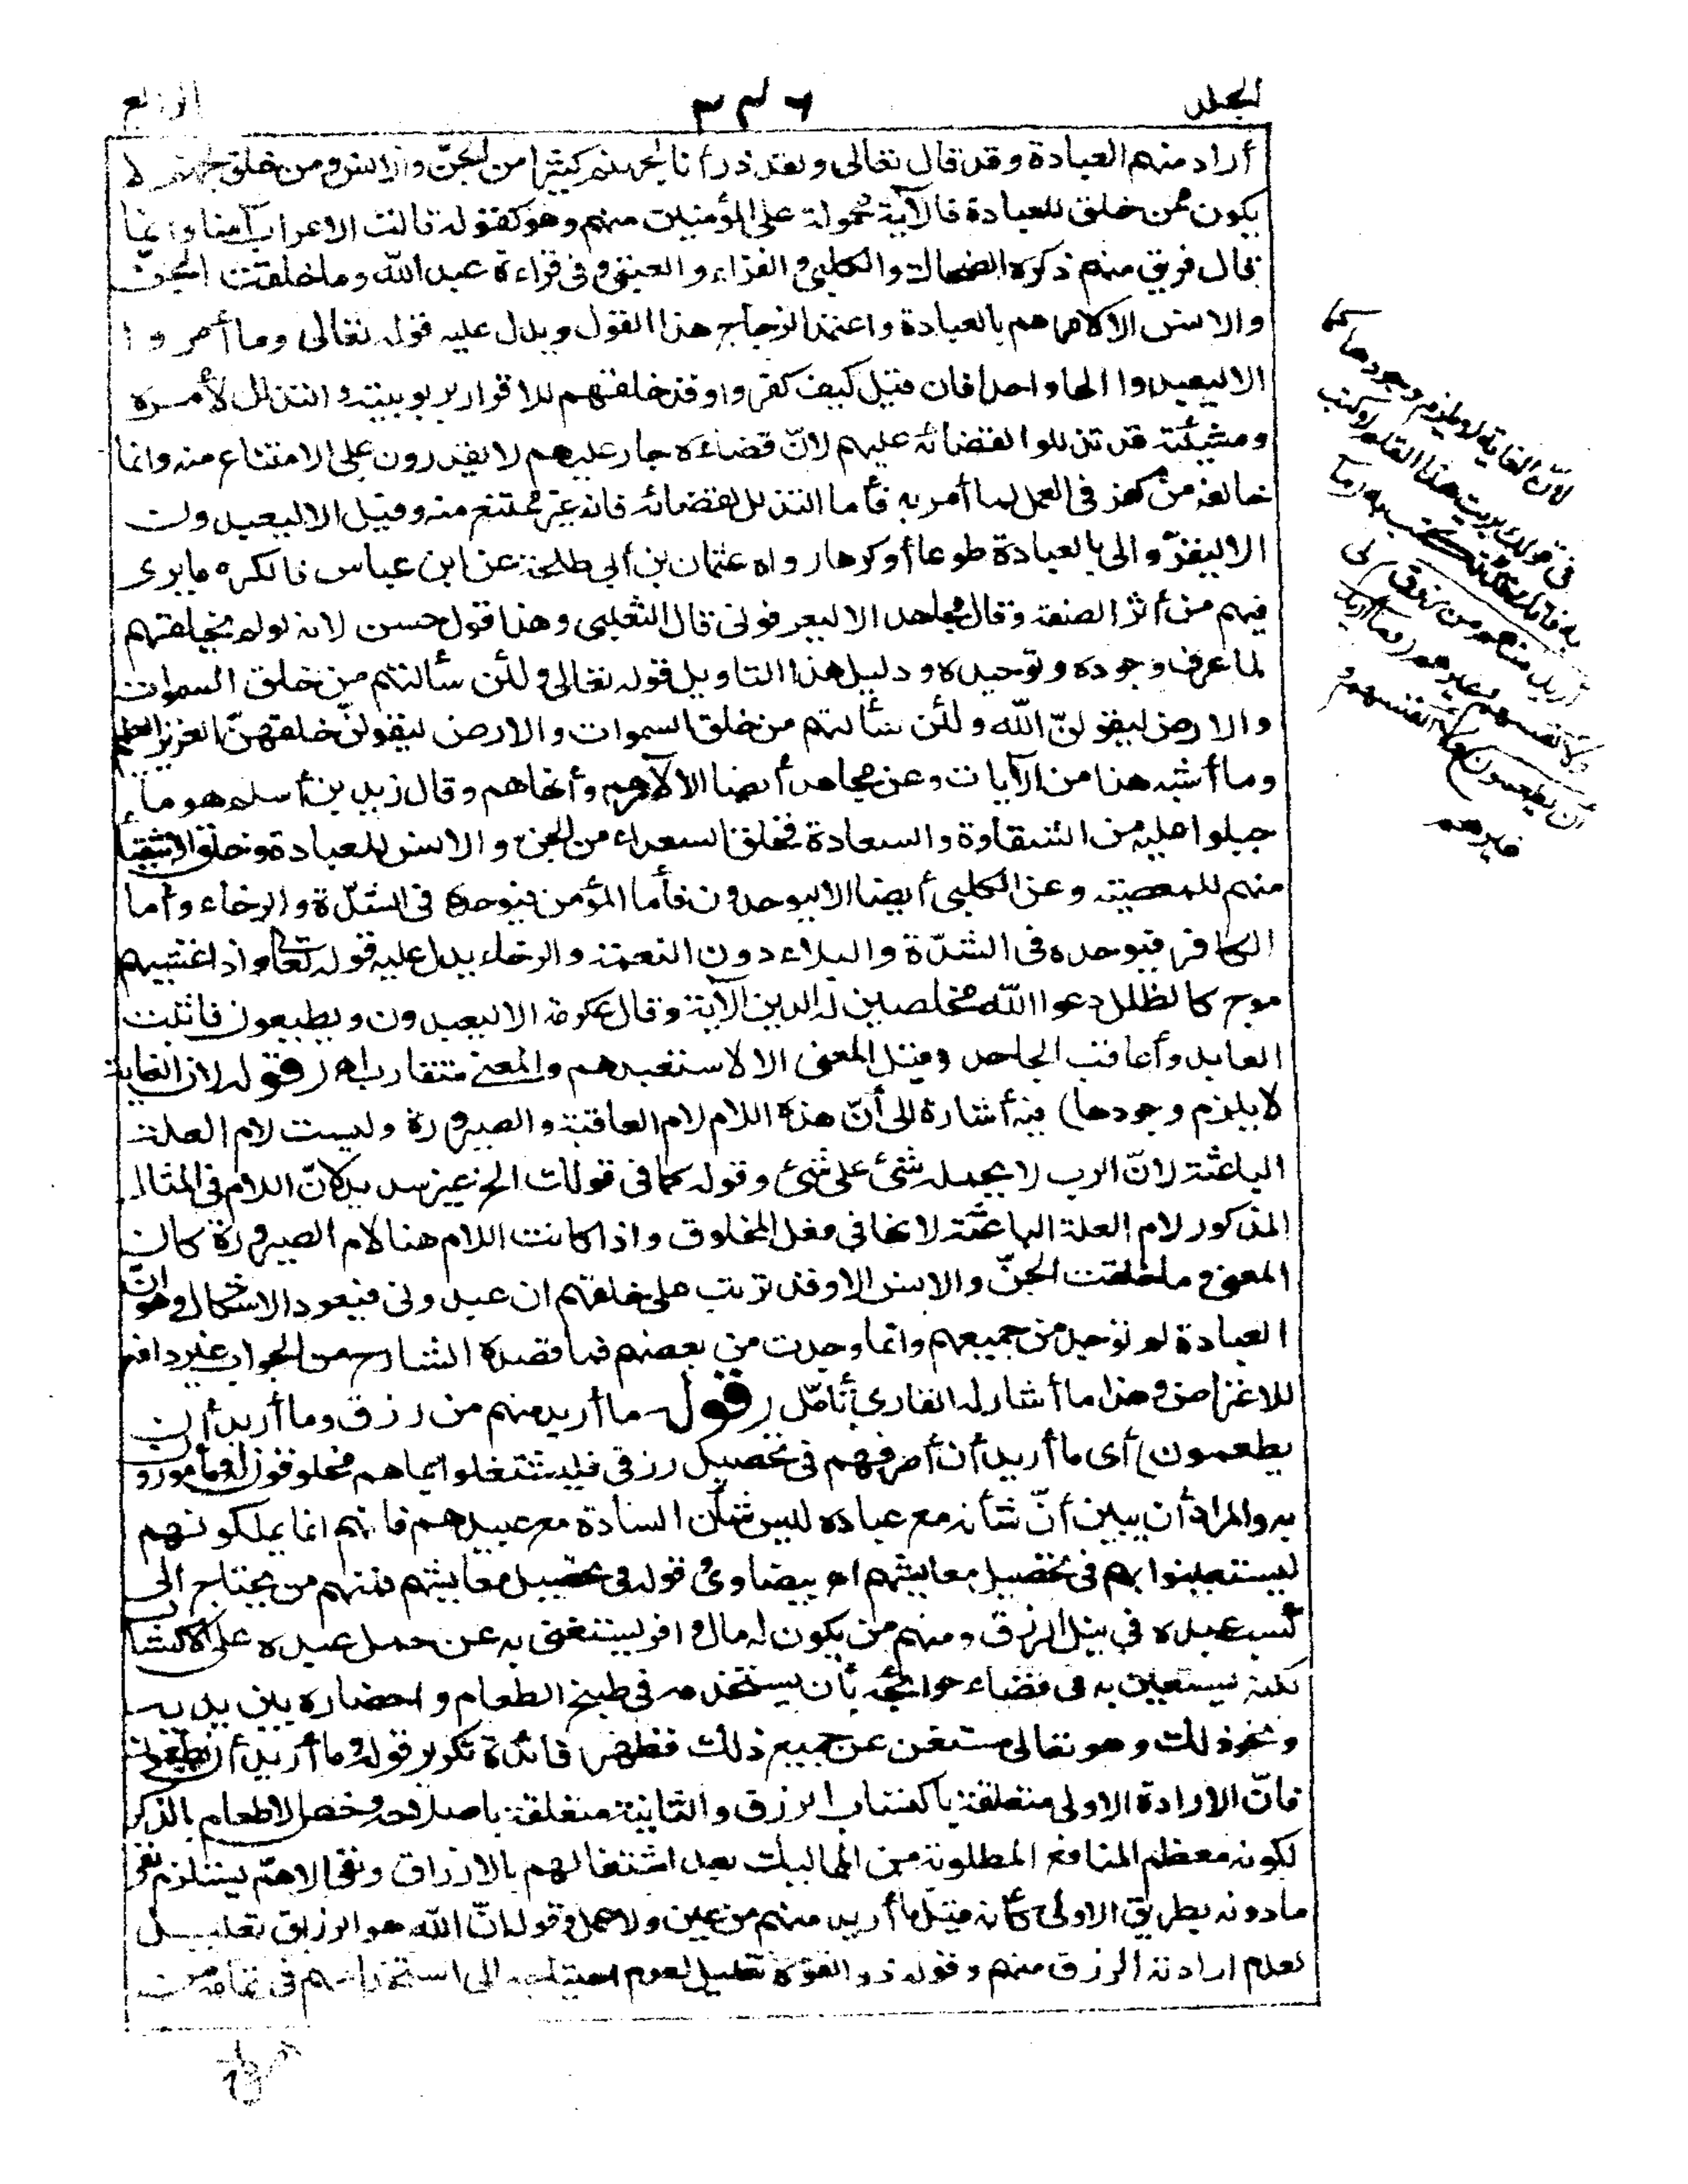 المجلد
٣٣٦
الرابع
أراد منهم العبادة وقد قال تعالى ولقد ذرأنا لجهنم كثيرا من الجنّ والانس ومن خلق لجهنم لا
يكون ممن خلق للعبادة فالآية محمولة على المؤمنين منهم وهو كقوله قالت الاعراب آمنا وانما
قال فريق منهم ذكره الضحاك والكلبى والفراء والعتبى وفى قراءة عبد الله وما خلقت الجنّ
والانس الا لامرهم بالعبادة واعتمد الزجاج هذا القول ويدل عليه قوله تعالى وما أمروا
الا ليعبدوا الها واحدا فان قيل كيف كفروا وقد خلقتهم للاقرار بربوبيته والتذلل لأمره
ومشيئته قد تذللوا لقضائه عليهم لانّ قضاءه جار عليهم لا يقدرون على الامتناع منه وانما
خالفه من كفر فى العمل بما أمر به فأما التذلل لقضائه فانه غير ممتنع منه وقيل الا ليعبدون
الا ليقرّوا لى بالعبادة طوعا أو كرها رواه عثمان بن أبى طلحة عن ابن عباس فالكره ما يرى
فيهم من أثر الصنعة وقال مجاهد الا ليعرفونى قال الثعلبى وهذا قول حسن لانه لو لم يخلقهم
لما عرف وجوده وتوحيده ودليل هذا التاويل قوله تعالى ولئن سألتهم من خلق السموات
والارض ليقولنّ الله ولئن سألتهم من خلق السموات والارض ليقولنّ خلقهنّ العزيز العليم
وما أشبه هذا من الآيات وعن مجاهد أيضا الا لآمرهم وأنهاهم وقال زيد بن أسلم هو ما
جبلوا عليه من الشقاوة والسعادة فخلق السعداء من الجن والانس للعبادة وخلق الاشقياء
منهم للمعصية وعن الكلبى أيضا الا ليوحدون فأما المؤمن فيوحده فى الشدّة والرخاء وأما
الكافر فيوحده فى الشدّة والبلاء دون النعمة والرخاء يدل عليه قوله تعالى واذا غشيهم
موج كالظلل دعوا الله مخلصين له الدين الآية وقال عكرمة الا ليعبدون ويطيعون فاثيب
العابد وأعاقب الجاحد وقيل المعنى الا لاستعبدهم والمعنى متقارب اهـ (قوله لان الغاية
لا يلزم وجودها) فيه أشارة الى أنّ هذه اللام لام العاقبة والصيرورة وليست لام العلة
الباعثة لانّ الرب لا يحمله شئ على شئ وقوله كما فى قولك الخ غير سديد لانّ اللام فى المثال
المذكور لام العلة الباعثة لانها فى فعل المخلوق واذا كانت اللام هنا لام الصيرورة كان
المعنى وما خلقت الجنّ والانس الا وقد ترتب على خلقهم ان عبدونى فيعود الاشكال وهو انّ
العبادة لم توجد من جميعهم وانما وجدت من بعضهم فما قصده الشارح من الجواب غير دافع
للاعتراض وهذا ما أشار له القارى تأمّل (قوله ما أريد منهم من رزق وما أريد أن
يطعمون) أى ما أريد أن أصرفهم فى تحصيل رزقى فليشتغلوا بما هم مخلوقون له ومأمورون
به والمراد أن يبين أنّ شأنه مع عباده ليس شأن السادة مع عبيدهم فانهم انما يملكونهم
ليستعينوا بهم فى تحصيل معايشهم اهـ بيضاوى قوله فى تحصيل معايشهم فمنهم من يحتاج الى
كسب عبده فى نيل الرزق ومنهم من يكون له مال وافر يستغنى به عن حمل عبده على الاكتساب
لكنه يستعين به فى قضاء حوائجه بأن يستخدمه فى طبخ الطعام واحضاره بين يديه
ونحو ذلك وهو تعالى مستغن عن جميع ذلك فظهر فائدة تكرير قوله وما أريد أن يطعمون
فانّ الارادة الاولى متعلقة باكتساب الرزق والثانية متعلقة باصلاحه وخص الاطعام بالذكر
لكونه معظم المنافع المطلوبة من المماليك بعد اشتغالهم بالارزاق ونفى الاهمّ يستلزم نفى
ما دونه بطريق الاولى كأنه قيل ما أريد منهم من عين ولا عمل وقوله انّ الله هو الرزاق تعليل
لعدم ارادته الرزق منهم وقوله ذو القوّة تعليل لعدم احتياجه الى استخدامهم فى
لانّ الغاية لا يلزم وجودها كما
فى قولك بريت هذا القلم لاكتب
به فانك قد لا تكتب به وما
أريد منهم من رزق لى
ولا نفسهم وغيرهم وما أريد
أن يطعمون ولا أنفسهم ولا
غيرهم